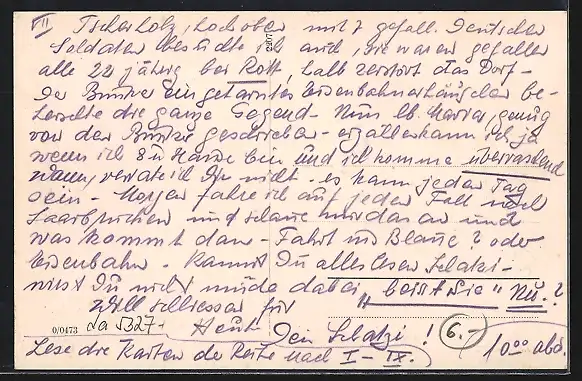 II Tscherholz, hoch oben mit 7 gefall. Deutschen
Soldaten besuchte ich auch, sie waren gefallen
alle 22 jährig bei Rott, halb zerstört das Dorf -
Der Bunker eingetarntes Eisenbahnerhäuschen be-
herrschte die ganze Gegend - Nun lb. Maria, genug
von den Bunker geschrieben - erzählen kann ich ja
wenn ich zu Hause bin und ich komme überraschend
wann, verrate ich Dir nicht - es kann jeden Tag
sein - Morgen fahre ich auf jeden Fall nach
Saarbrücken und schaue mir das an und
was kommt dann - Fahrt ins Blaue? oder
Eisenbahn. Kannst Du alles lesen Schatzi -
wirst Du nicht müde dabei "beisst Sie" Nü.?
Will schliessen für
Heute Dein Schatzi!
6.-
10⁰⁰ abds.
0/0473 da 5327
Lese die Karten der Reihe nach I - IX.